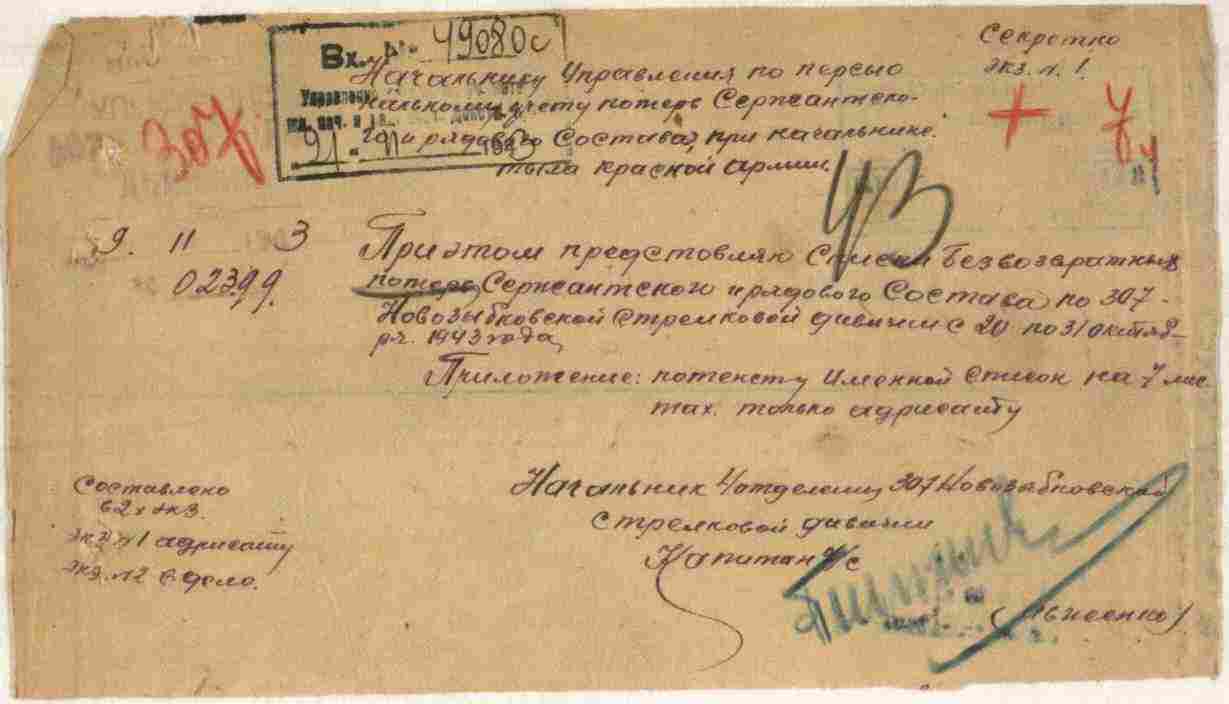 Секретно
экз. н. 1.
Вх. № 49080с
Начальнику Управления по персо
нальному учету потерь Сержантско-
го и рядового Состава, при начальнике
тыла красной армии.
307
+ 7
43
9. 11 3
02399.
При этом представляю Списки Безвозвратных
потерь Сержантского и рядового Состава по 307-
Новозыбковской Стрелковой дивизии с 20 по 31 октяб-
ря. 1943 года,
Приложение: по тексту Именной Список на 7 лис
тах. только адрисату
Составлено
в 2х экз.
экз н1 адрисату
экз. н2 в дело.
Начальник 4 отделения 307 Новозыбковской
Стрелковой дивизии
Капитан